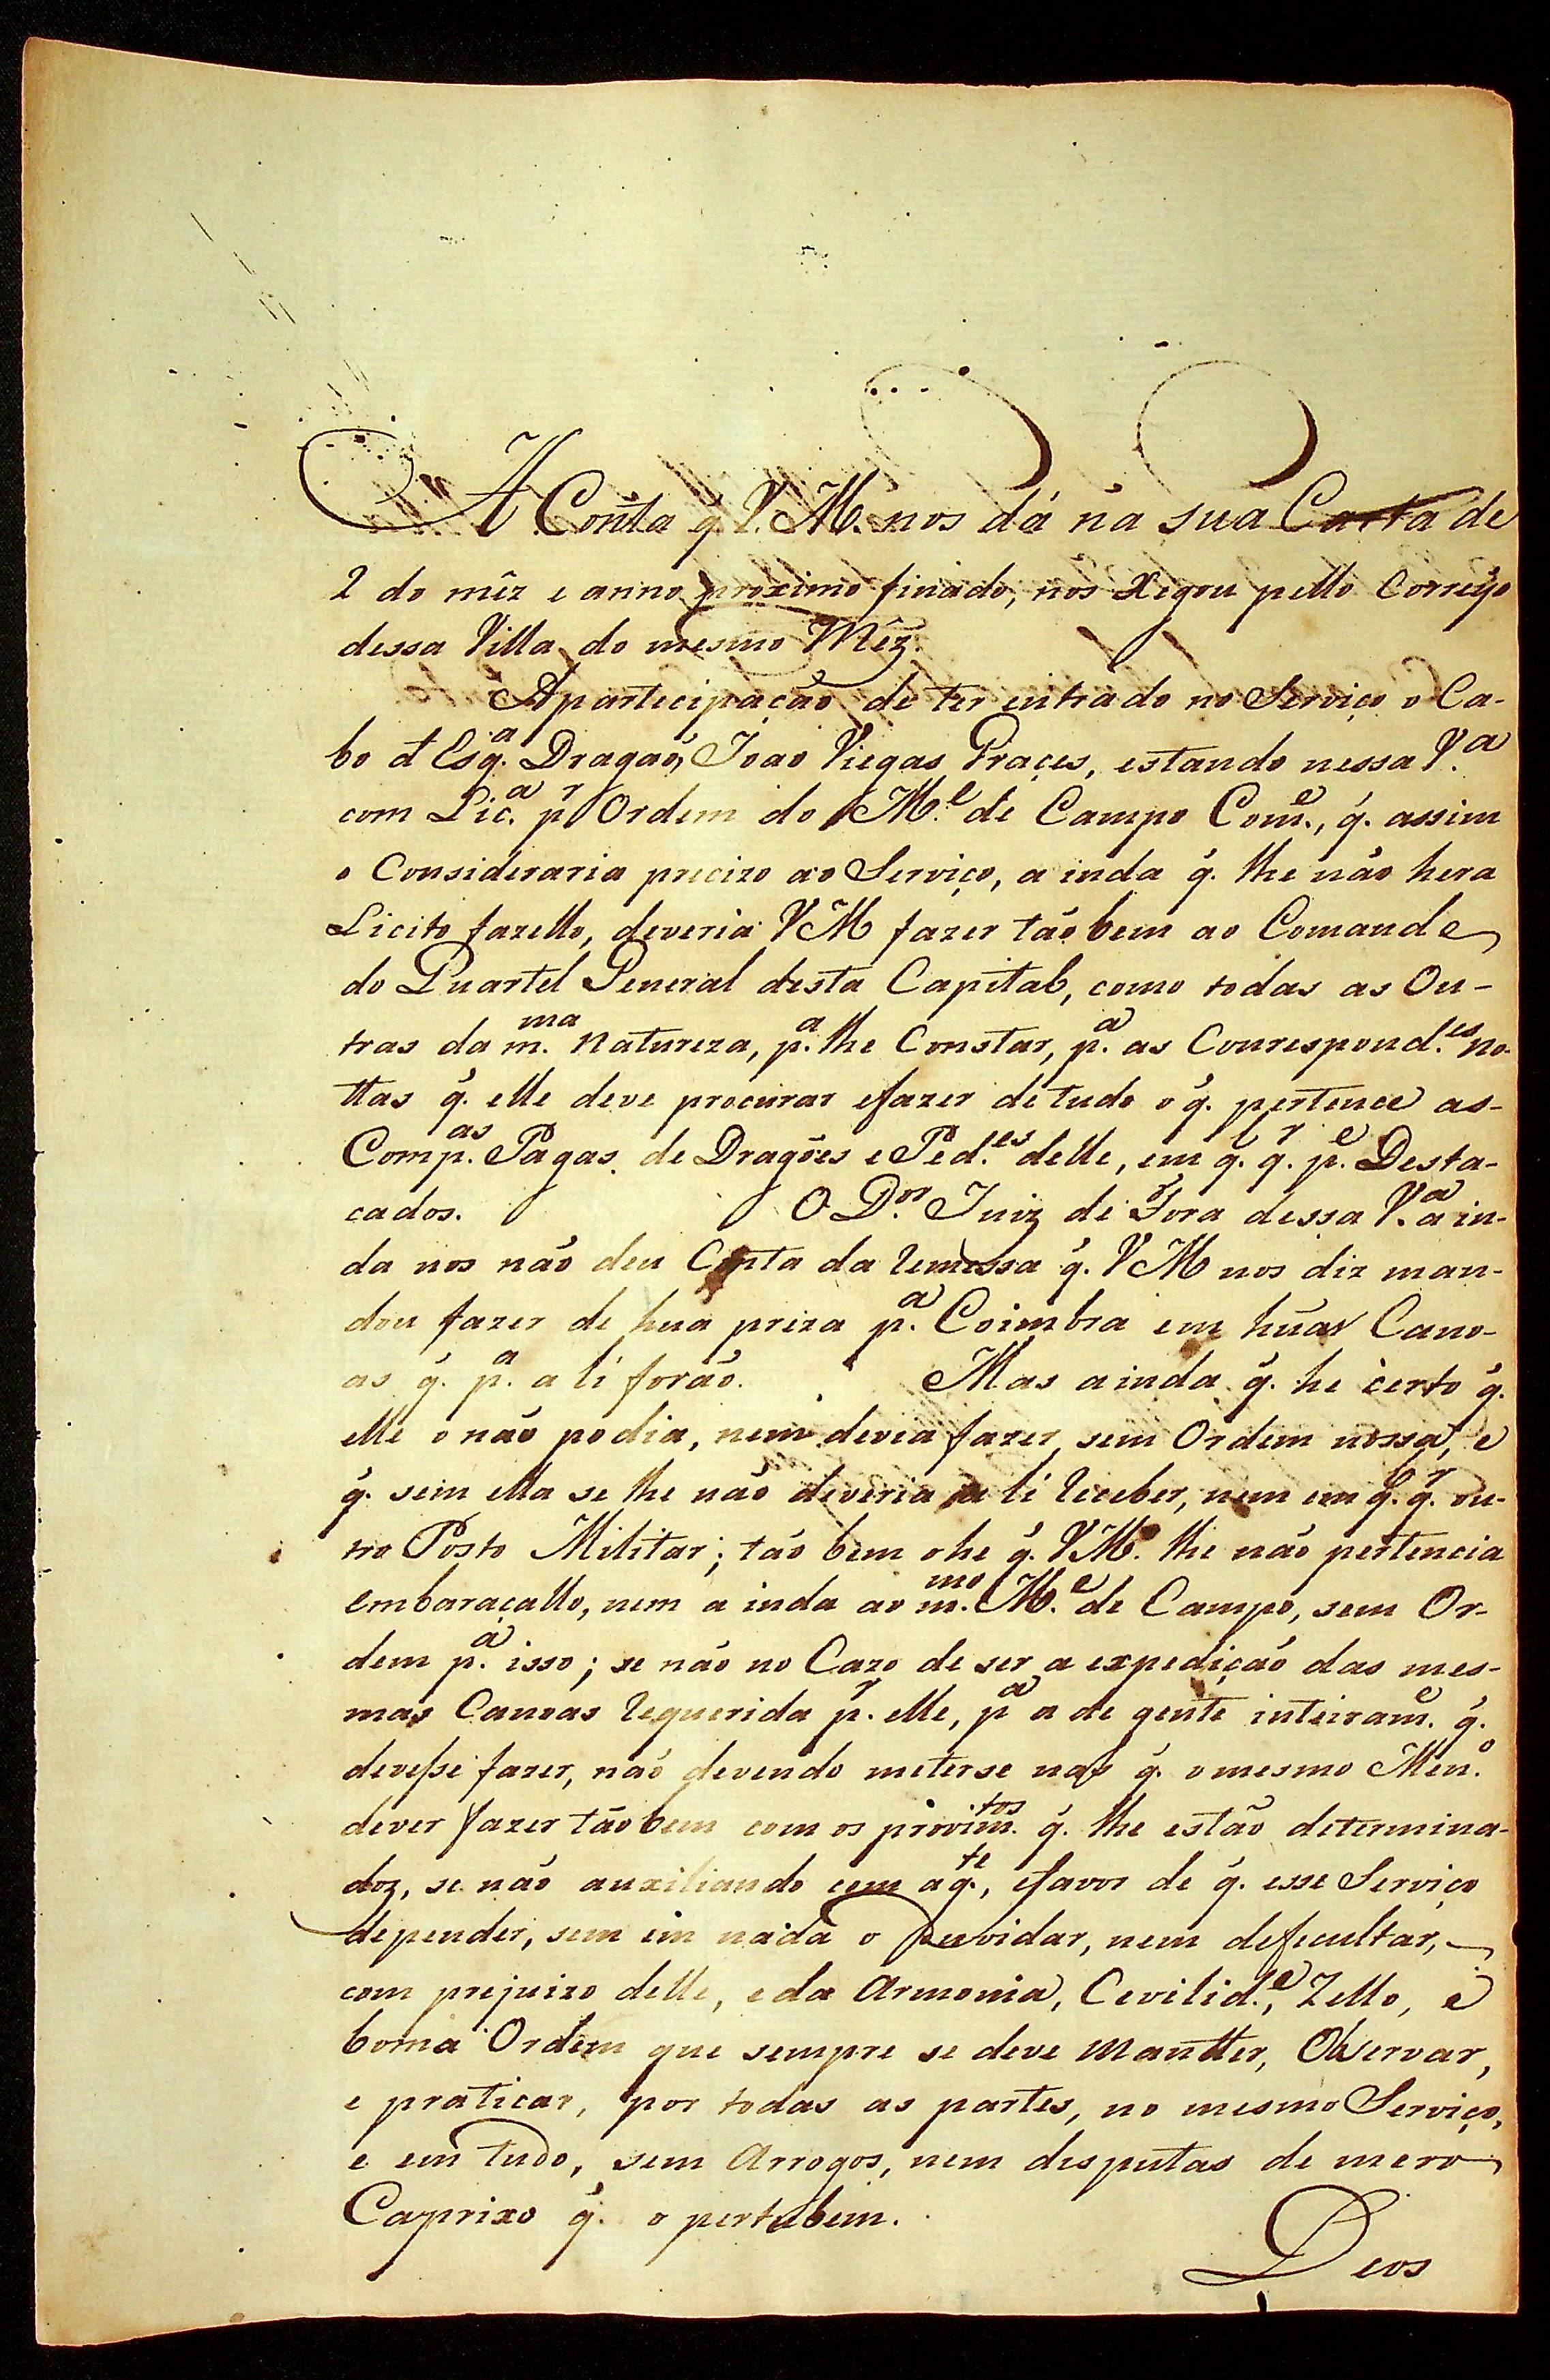 A Conta q̃. V. M. nos dá na sua Carta de
2 do mêz e anno proximo finado, nos Xegou pello Correyo
dessa Villa do mesmo Mêz.
Apartecipação de ter entrado no Serviço o Ca-
bo d Esq.ª Dragaõ, Joao Viegas Praçes, estando nessa V.ª
com Lic.ª p.r Ordem do M.e de Campo Com.e, q̃. assim
o Consideraria precizo ao Serviço, a inda q̃. lhe não hera
Licito fazello, deveria VM fazer tão bem ao Comand.e
do Quartel General desta Capital, como todas as Ou-
tras da m.ma Natureza, p.ª lhe Constar, p.ª as Courespond.es no-
ttas q̃. elle deve procurar efazer de tudo o q̃. pertence as-
Comp.as Pagas de Dragões e Ped.es delle, em q.l q.r p.e Desta-
cados. O D.or Juiz de Fora dessa V.ª ain-
da nos não deu Conta da Remessa q̃. VM nos diz man-
dou fazer de hua preza p.ª Coimbra em hũas Cano-
as q̃. p.ª a li forão. Mas ainda q̃. he certo q̃.
elle o não podia, nem devea fazer, sem Ordem nossa, e
q̃. sem ella se lhe não deveria a li Receber, nem em q.l q.r ou-
tro Posto Militar; tão bem o he q̃. VM. lhe não pertencia
embaraçallo, nem a inda ao m.mo M.e de Campo, sem Or-
dem p.ª isso; se não no Cazo de ser a expedição das mes-
mas Canoas Requerida p.r elle, p.ª a de gente inteiram.e q̃.
devesse fazer, não devendo meterse nas q̃. o mesmo Men.o
dever fazer tão bem com os provim.tos q̃. lhe estão determina-
doz, se não auxiliando com a q.te, efavor de q̃. esse Serviço
depender, sem em nada o duvidar, nem defecultar,
com prejuizo delle, e da Armonia, Cevilid.e, Zello, e
boma Ordem que sempre se deve Mantter, Observar,
e praticar, por todas as partes, no mesmo Serviço,
e em tudo, sem Arrogos, nem desputas de mero
Caprixo q̃. o pertubem.
Deos